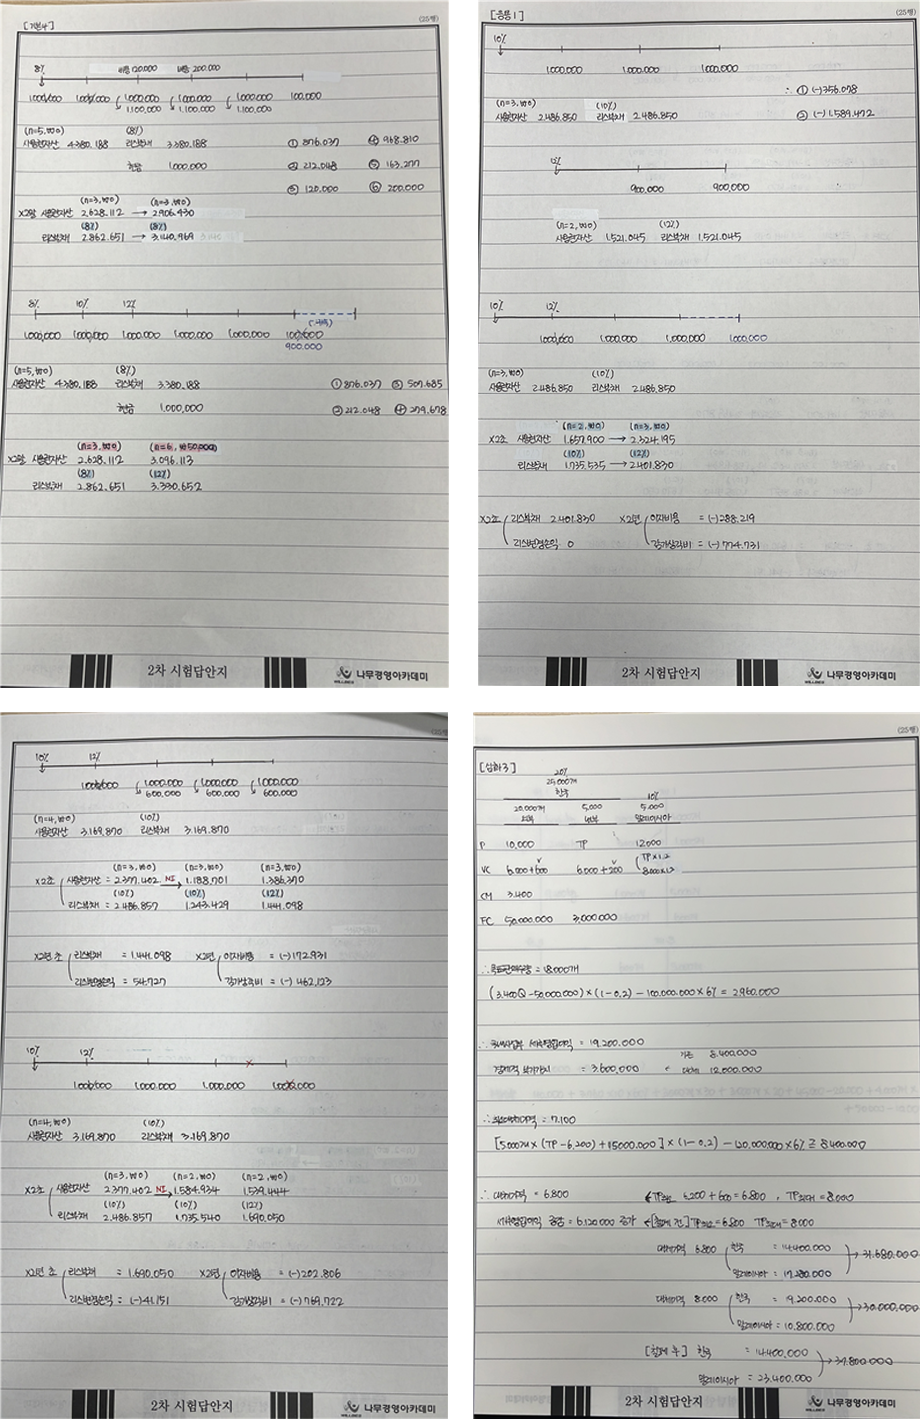 [기본4]
(25행)
8%
비품 120.000 비품 200.000
1.000.000 1.000.000 1.000.000 1.000.000 1.000.000 100.000
1.100.000 1.100.000 1.100.000
(n=5, ₩0) (8%)
사용권자산 4.380.188 리스부채 3.380.188 ① 876.037 ④ 968.810
현금 1.000.000 ② 212.048 ⑤ 163.277
③ 120.000 ⑥ 200.000
(n=3, ₩0) (n=3, ₩0)
X2말 사용권자산 2.628.112 → 2.906.430
(8%) (8%)
리스부채 2.862.651 → 3.140.969
8% 10% 12%
1.000.000 1.000.000 1.000.000 1.000.000 1.000.000 100.000
900.000
(n=5, ₩0) (8%)
사용권자산 4.380.188 리스부채 3.380.188 ① 876.037 ③ 507.685
현금 1.000.000 ② 212.048 ④ 279.678
(n=3, ₩0) (n=6, ₩50.000)
X2말 사용권자산 2.628.112 3.096.113
(8%) (12%)
리스부채 2.862.651 3.330.652
2차 시험답안지
나무경영아카데미
[응용1]
(25행)
10%
1.000.000 1.000.000 1.000.000
∴ ① (-)356.078
(n=3, ₩0) (10%)
사용권자산 2.486.850 리스부채 2.486.850 ② (-)1.589.472
900.000 900.000
(n=2, ₩0) (12%)
사용권자산 1.521.045 리스부채 1.521.045
10% 12%
1.000.000 1.000.000 1.000.000 1.000.000
(n=3, ₩0) (10%)
사용권자산 2.486.850 리스부채 2.486.850
(n=2, ₩0) (n=3, ₩0)
X2초 사용권자산 1.657.900 → 2.324.195
(10%) (12%)
리스부채 1.735.535 → 2.401.830
X2초 리스부채 2.401.830 X2년 이자비용 = (-)288.219
리스변경손익 0 감가상각비 = (-)774.731
2차 시험답안지
나무경영아카데미
10% 12%
1.000.000 1.000.000 1.000.000 1.000.000
600.000 600.000 600.000
(n=4, ₩0) (10%)
사용권자산 3.169.870 리스부채 3.169.870
(n=3, ₩0) (n=3, ₩0) (n=3, ₩0)
X2초 사용권자산 = 2.377.402 NI → 1.188.701 1.386.370
(10%) (10%) (12%)
리스부채 = 2.486.857 1.243.429 1.441.098
X2년 초 리스부채 = 1.441.098 X2년 이자비용 = (-)172.931
리스변경손익 = 54.727 감가상각비 = (-)462.123
10% 12%
1.000.000 1.000.000 1.000.000 1.000.000
(n=4, ₩0) (10%)
사용권자산 3.169.870 리스부채 3.169.870
(n=3, ₩0) (n=2, ₩0) (n=2, ₩0)
X2초 사용권자산 2.377.402 NI → 1.584.934 1.539.444
(10%) (10%) (12%)
리스부채 2.486.857 1.735.540 1.690.050
X2년 초 리스부채 = 1.690.050 X2년 이자비용 = (-)202.806
리스변경손익 = (-)41.151 감가상각비 = (-)769.722
2차 시험답안지
나무경영아카데미
(25행)
[심화3]
20%
25,000개
한국
10%
20,000개 5,000 5,000
외부 내부 말레이시아
P 10,000 TP 12,000
VC 6,000+600 6,000+200 TP×1.2
CM 3.400
FC 50.000.000 3,000,000
∴ 목표판매수량 = 18.000개
(3.400Q - 50.000.000) × (1 - 0.2) - 100.000.000 × 6% = 2.960.000
= 19.200.000
경제적 부가가치 = 3.600.000 8.400.000
12.000.000
= 7.100
[5.000개 × (TP - 6.200) + 15.000.000] × (1 - 0.2) - 120.000.000 × 6% ≥ 8.400.000
∴ 대체가격 = 6.800 6.200 + 600 = 6.800, TP최대 = 8.000
= 6.120.000 증가 TP최소 = 6.800 TP최대 = 8.000
대체가격 6.800 한국 = 14.400.000 → 31.680.000
말레이시아 = 17.280.000
대체가격 8.000 한국 = 19.200.000 → 30.000.000
말레이시아 = 10.800.000
한국 = 14.400.000 → 37.800.000
말레이시아 = 23.400.000
2차 시험답안지
나무경영아카데미